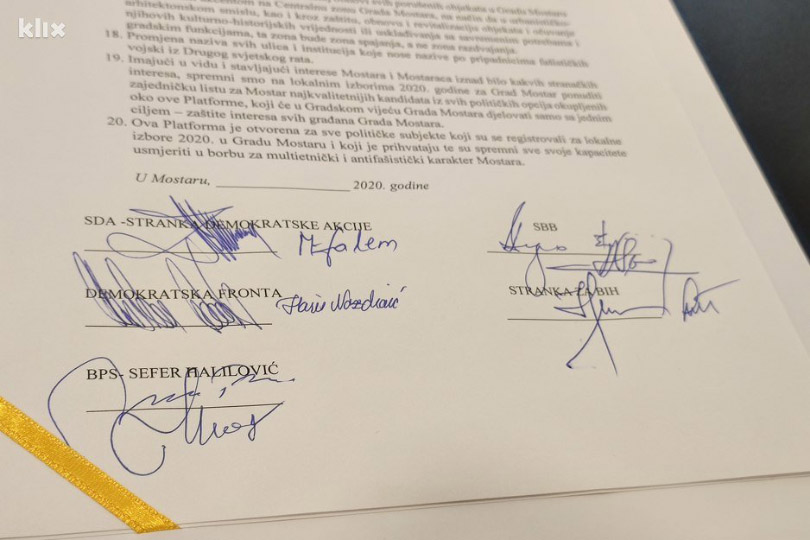 klix
arhitektonskom smislu, kao i kroz zaštitu, obnovu i revitalizaciju objekata i očuvanje
njihovih kulturno-historijskih vrijednosti ili usklađivanja sa savremenim potrebama i
gradskim funkcijama, ta zona bude zona spajanja, a ne zona razdvajanja.
18. Promjena naziva svih ulica i institucija koje nose nazive po pripadnicima fašističkih
vojski iz Drugog svjetskog rata.
19. Imajući u vidu i stavljajući interese Mostara i Mostaraca iznad bilo kakvih stranačkih
interesa, spremni smo na lokalnim izborima 2020. godine za Grad Mostar ponuditi
zajedničku listu za Mostar najkvalitetnijih kandidata iz svih političkih opcija okupljenih
oko ove Platforme, koji će u Gradskom vijeću Grada Mostara djelovati samo sa jednim
ciljem – zaštite interesa svih građana Grada Mostara.
20. Ova Platforma je otvorena za sve političke subjekte koji su se registrovali za lokalne
izbore 2020. u Gradu Mostaru i koji je prihvataju te su spremni sve svoje kapacitete
usmjeriti u borbu za multietnički i antifašistički karakter Mostara.
U Mostaru, ____________________ 2020. godine
SDA -STRANKA DEMOKRATSKE AKCIJE
SBB
DEMOKRATSKA FRONTA
STRANKA ZA BIH
Haris
BPS- SEFER HALILOVIĆ